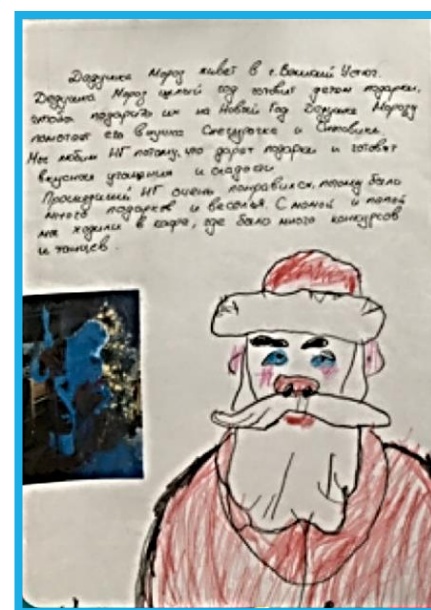 Дедушка Мороз живет в г. Великий Устюг.
Дедушка Мороз целый год готовит детям подарки,
чтобы подарить их на Новый Год. Дедушке Морозу
помогает его внучка Снегурочка и Снеговик.
Мы любим НГ потому, что дарят подарки и готовят
вкусные угощения и сладости
Прошедший НГ очень понравился, потому было
много подарков и веселья. С мамой и папой
мы ходили в кафе, где было много конкурсов
и танцев.